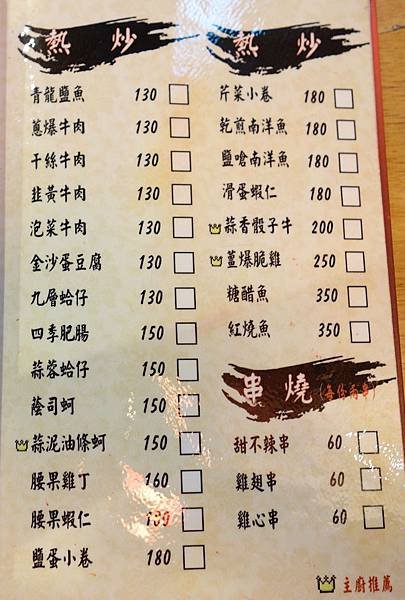 熱炒
青龍鹽魚 130
蔥爆牛肉 130
干絲牛肉 130
韭黃牛肉 130
泡菜牛肉 130
金沙蛋豆腐 130
九層蛤仔 130
四季肥腸 150
蒜蓉蛤仔 150
蔭司蚵 150
蒜泥油條蚵 150
腰果雞丁 160
腰果蝦仁 180
鹽蛋小卷 180
熱炒
芹菜小卷 180
乾煎南洋魚 180
鹽嗆南洋魚 180
滑蛋蝦仁 180
蒜香骰子牛 200
薑爆脆雞 250
糖醋魚 350
紅燒魚 350
串燒(每份兩串)
甜不辣串 60
雞翅串 60
雞心串 60
主廚推薦